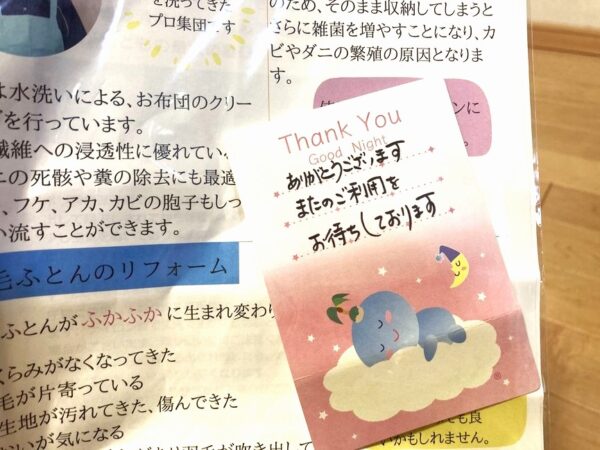 を洗ってきた
プロ集団です
そのまま収納してしまうと
さらに雑菌を増やすことになり、カ
ビやダニの繁殖の原因となりま
す。
は水洗いによる、お布団のクリー
を行っています。
繊維への浸透性に優れてい
ニの死骸や糞の除去にも最適
、フケ、アカ、カビの胞子もしっ
い流すことができます。
毛ふとんのリフォーム
ふとんが ふかふか に生まれ変わり
くらみがなくなってきた
毛が片寄っている
生地が汚れてきた、傷んできた
いが気になる
Thank You
Good Night
ありがとうございます
またのご利用を
お待ちしております
ンに
も良
いかもしれません。